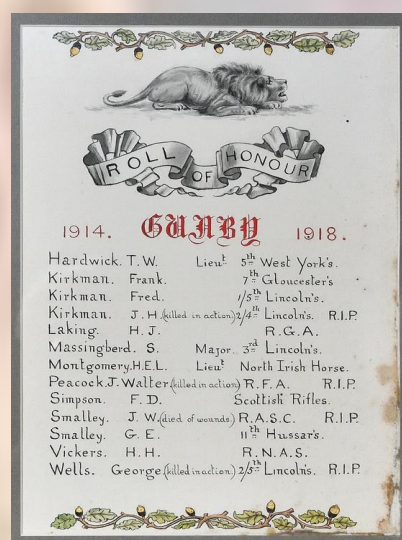 ROLL OF HONOUR
1914. GUNBY 1918.
Hardwick. T.W. Lieut 5th West York's.
Kirkman. Frank. 7th Gloucester's
Kirkman. Fred. 1/5th Lincoln's.
Kirkman. J.H. (killed in action) 2/4th Lincoln's. R.I.P.
Laking. H.J. R.G.A.
Massingberd. S. Major. 3rd Lincoln's.
Montgomery. H.E.L. Lieut North Irish Horse.
Peacock. J. Walter. (killed in action) R.F.A. R.I.P.
Simpson. F.D. Scottish Rifles.
Smalley. J.W. (died of wounds) R.A.S.C. R.I.P.
Smalley. G.E. 11th Hussar's.
Vickers. H.H. R.N.A.S.
Wells. George. (killed in action) 2/5th Lincoln's. R.I.P.